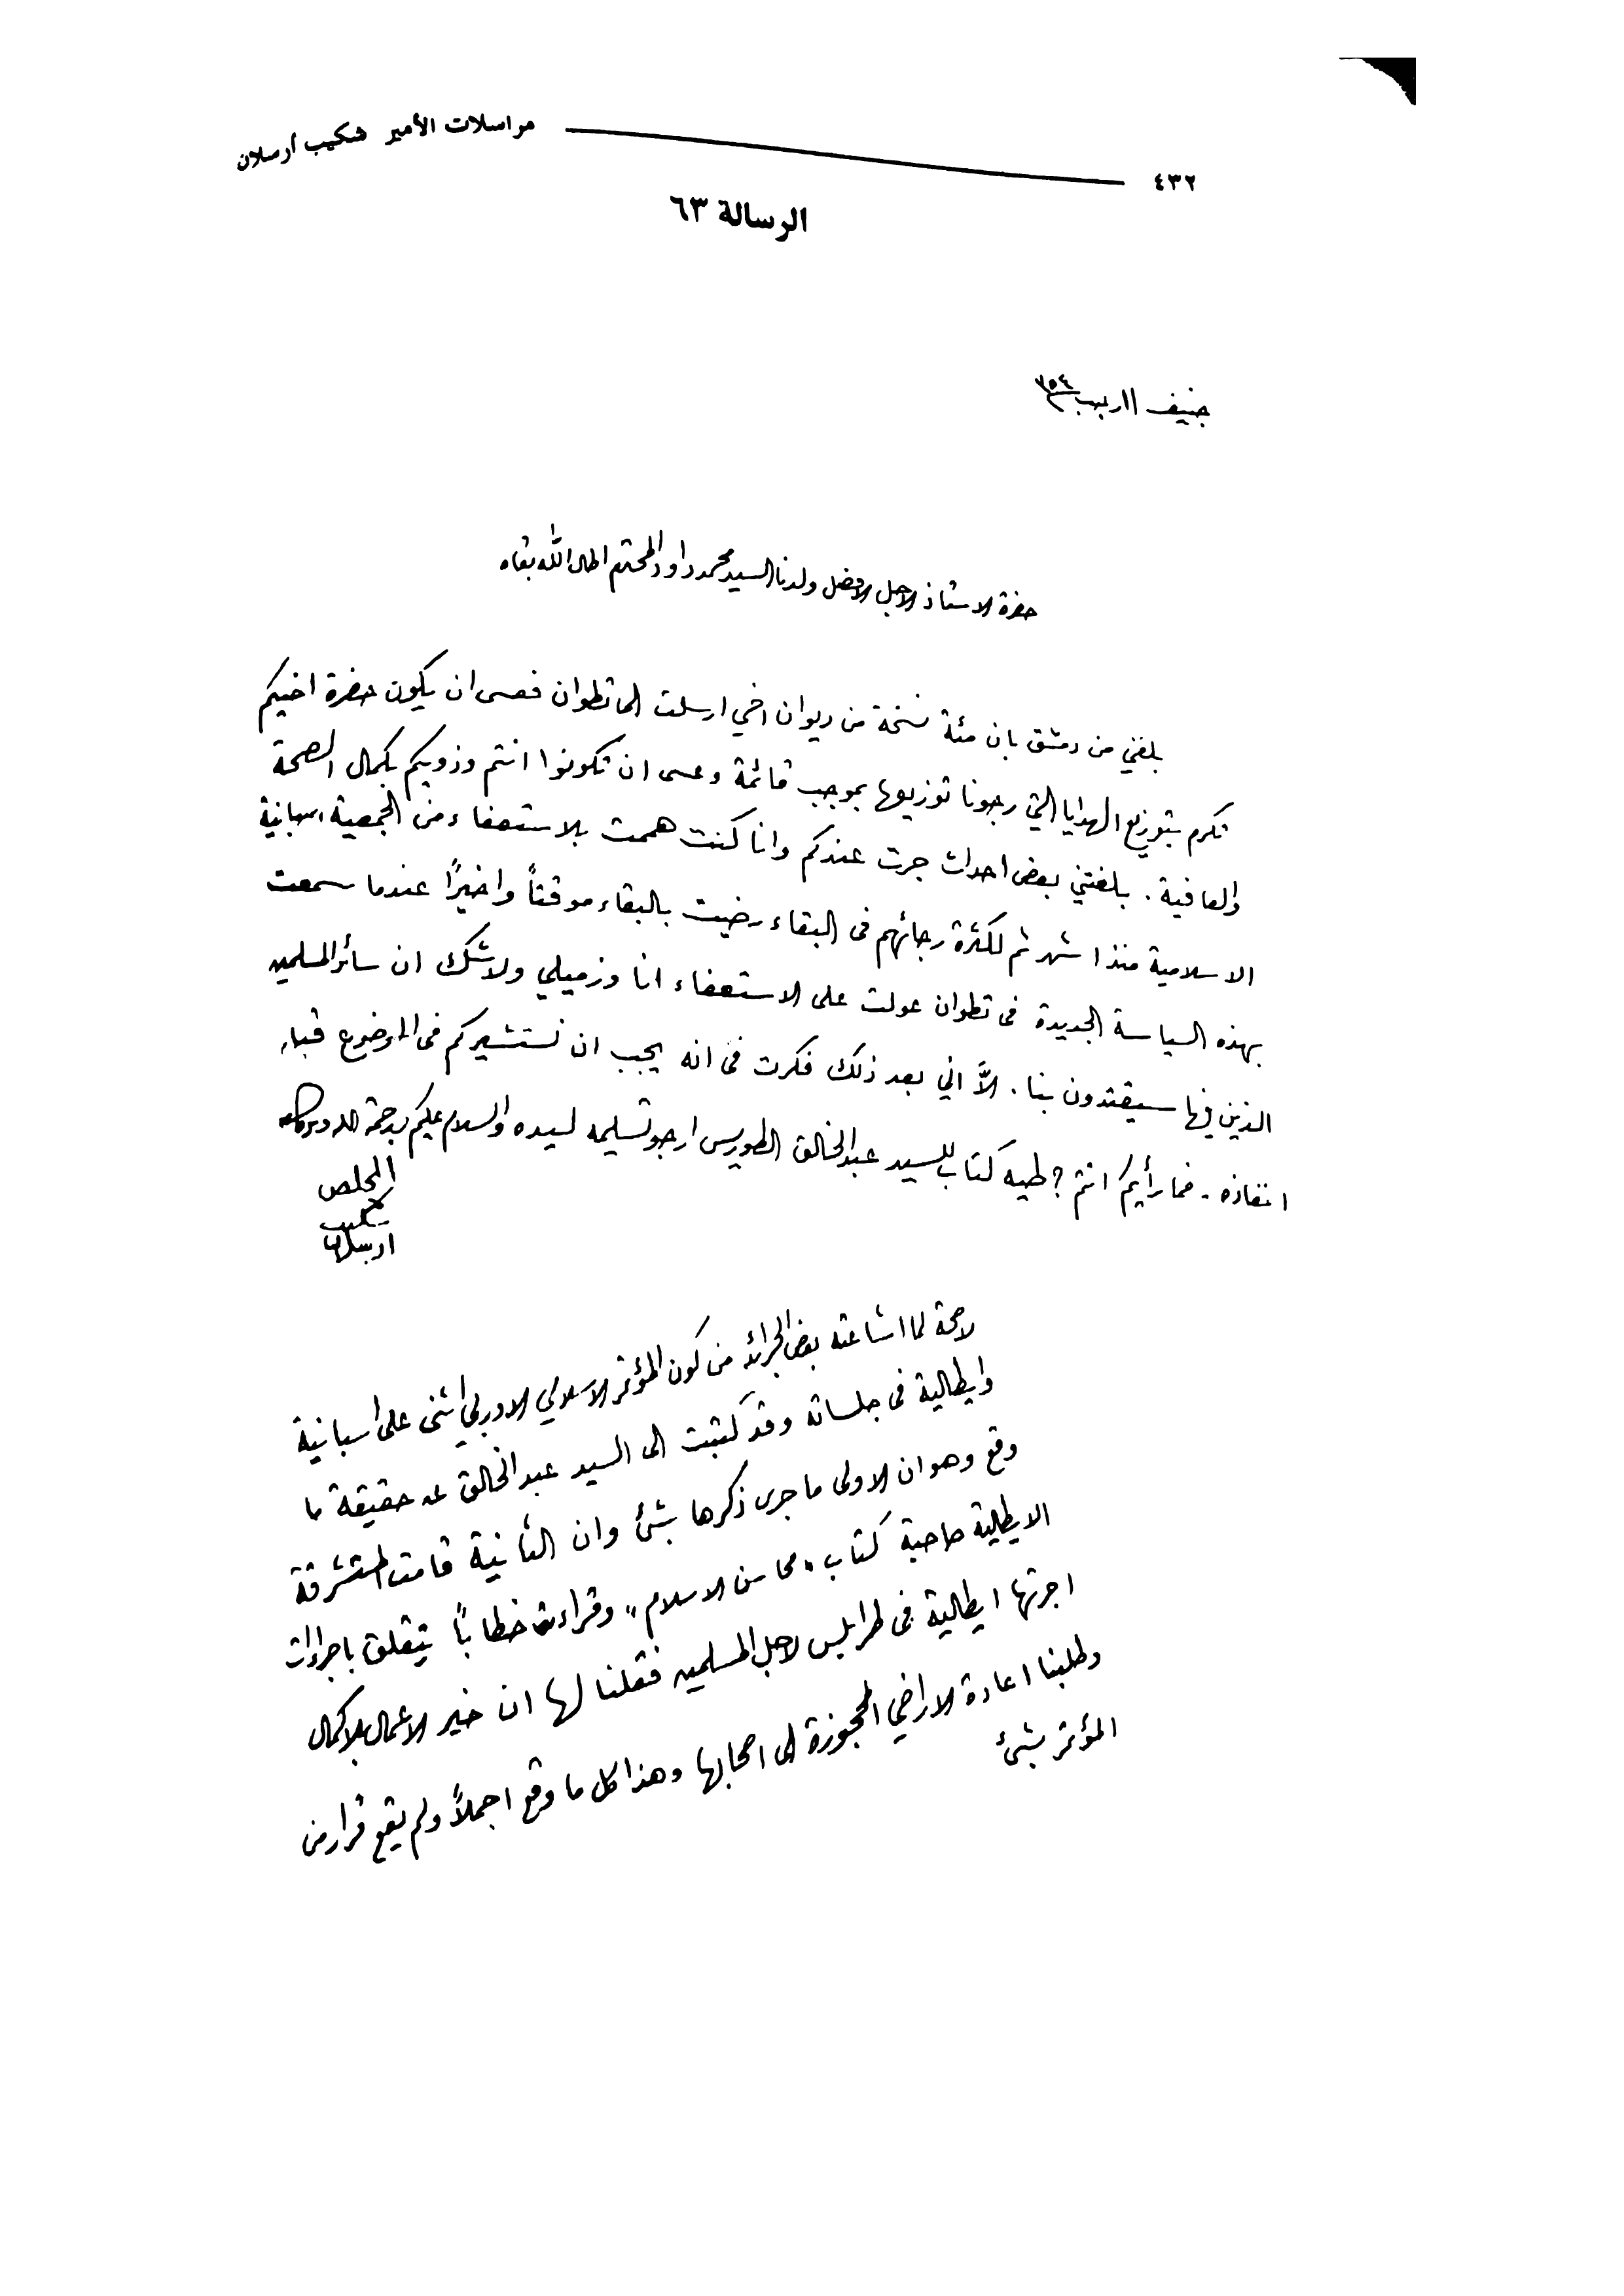 ٤٣٢ مراسلات الأمير شكيب أرسلان
الرسالة ٦٣
جنيف ١١ رجب ٣٥٤
حضرة الاستاذ الاجل الافضل ولدنا السيد محمد داود المحترم اطال الله بقاه
بلغني من دمشق بان مئة نسخة من ديوان اخي ارسلت الى تطوان فعسى ان يكون حضرة اخيكم
تكرم بتوزيع الهدايا التي رجونا توزيعها بموجب قائمة وعسى ان تكونوا انتم وذويكم بكمال الصحة
والعافية . بلغتني بعض احداث جرت عندكم وانا كنت هممت بالاستعفاء من الجمعية اسبانية
الاسلامية منذ اشهر ثم لكثرة رجائهم في البقاء رضيت بالبقاء موقتاً واخيرًا عندما سمعت
بهذه السياسة الجديدة في تطوان عولت على الاستعفاء انا وزميلي ولا شك ان سائر المسلمين
الذين فيها سيقتدون بنا . الاَّ اني بعد ذلك فكرت في انه يجب ان نستشيركم في الموضوع قبل
انفاذه . فما رأيكم انتم ؟ طيه كتاب للسيد عبد الخالق الطوريس ارجو تسليمه ليده والسلام عليكم ورحمة الله وبركاته
المخلص
شكيب
ارسلان
لا صحة لما اشاعته بعض الجرائد من كون المؤتمر الاسلامي الاوربي اثنى على اسبانية
وايطالية في جلساته وقد كتبت الى السيد عبد الخالق عن حقيقة ما
وقع وهو ان الاولى ما جرى ذكرها بشئ وان الثانية قامت المستشرقة
الايطالية صاحبة كتاب "محاسن الاسلام" وقراءت خطاباً يتعلق باجراات
اجرتها ايطالية في طرابلس لاجل المسلمين فقلنا لها ان خير الاعمال بالاكمال
وطلبنا اعادة الاراضي المحجوزة الى اصحابها وهذا كل ما وقع اجمالاً ولم يقع قرار من
المؤتمر بشئ